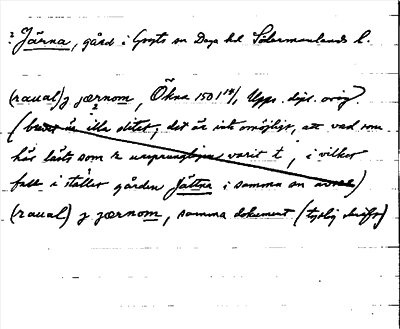 ? Järna, gård i Gryts sn Daga hd Södermanlands l.
(raual) j jærnom, Ökna 1501 14/1 Upps. dipl. orig.
( är illa slitet; det är inte omöjligt, att vad som
här lästs som r ursprungligen varit t, i vilket
fall i stället gården Jättna i samma sn )
(raual) j jærnom, samma dokument (tydlig skrift)